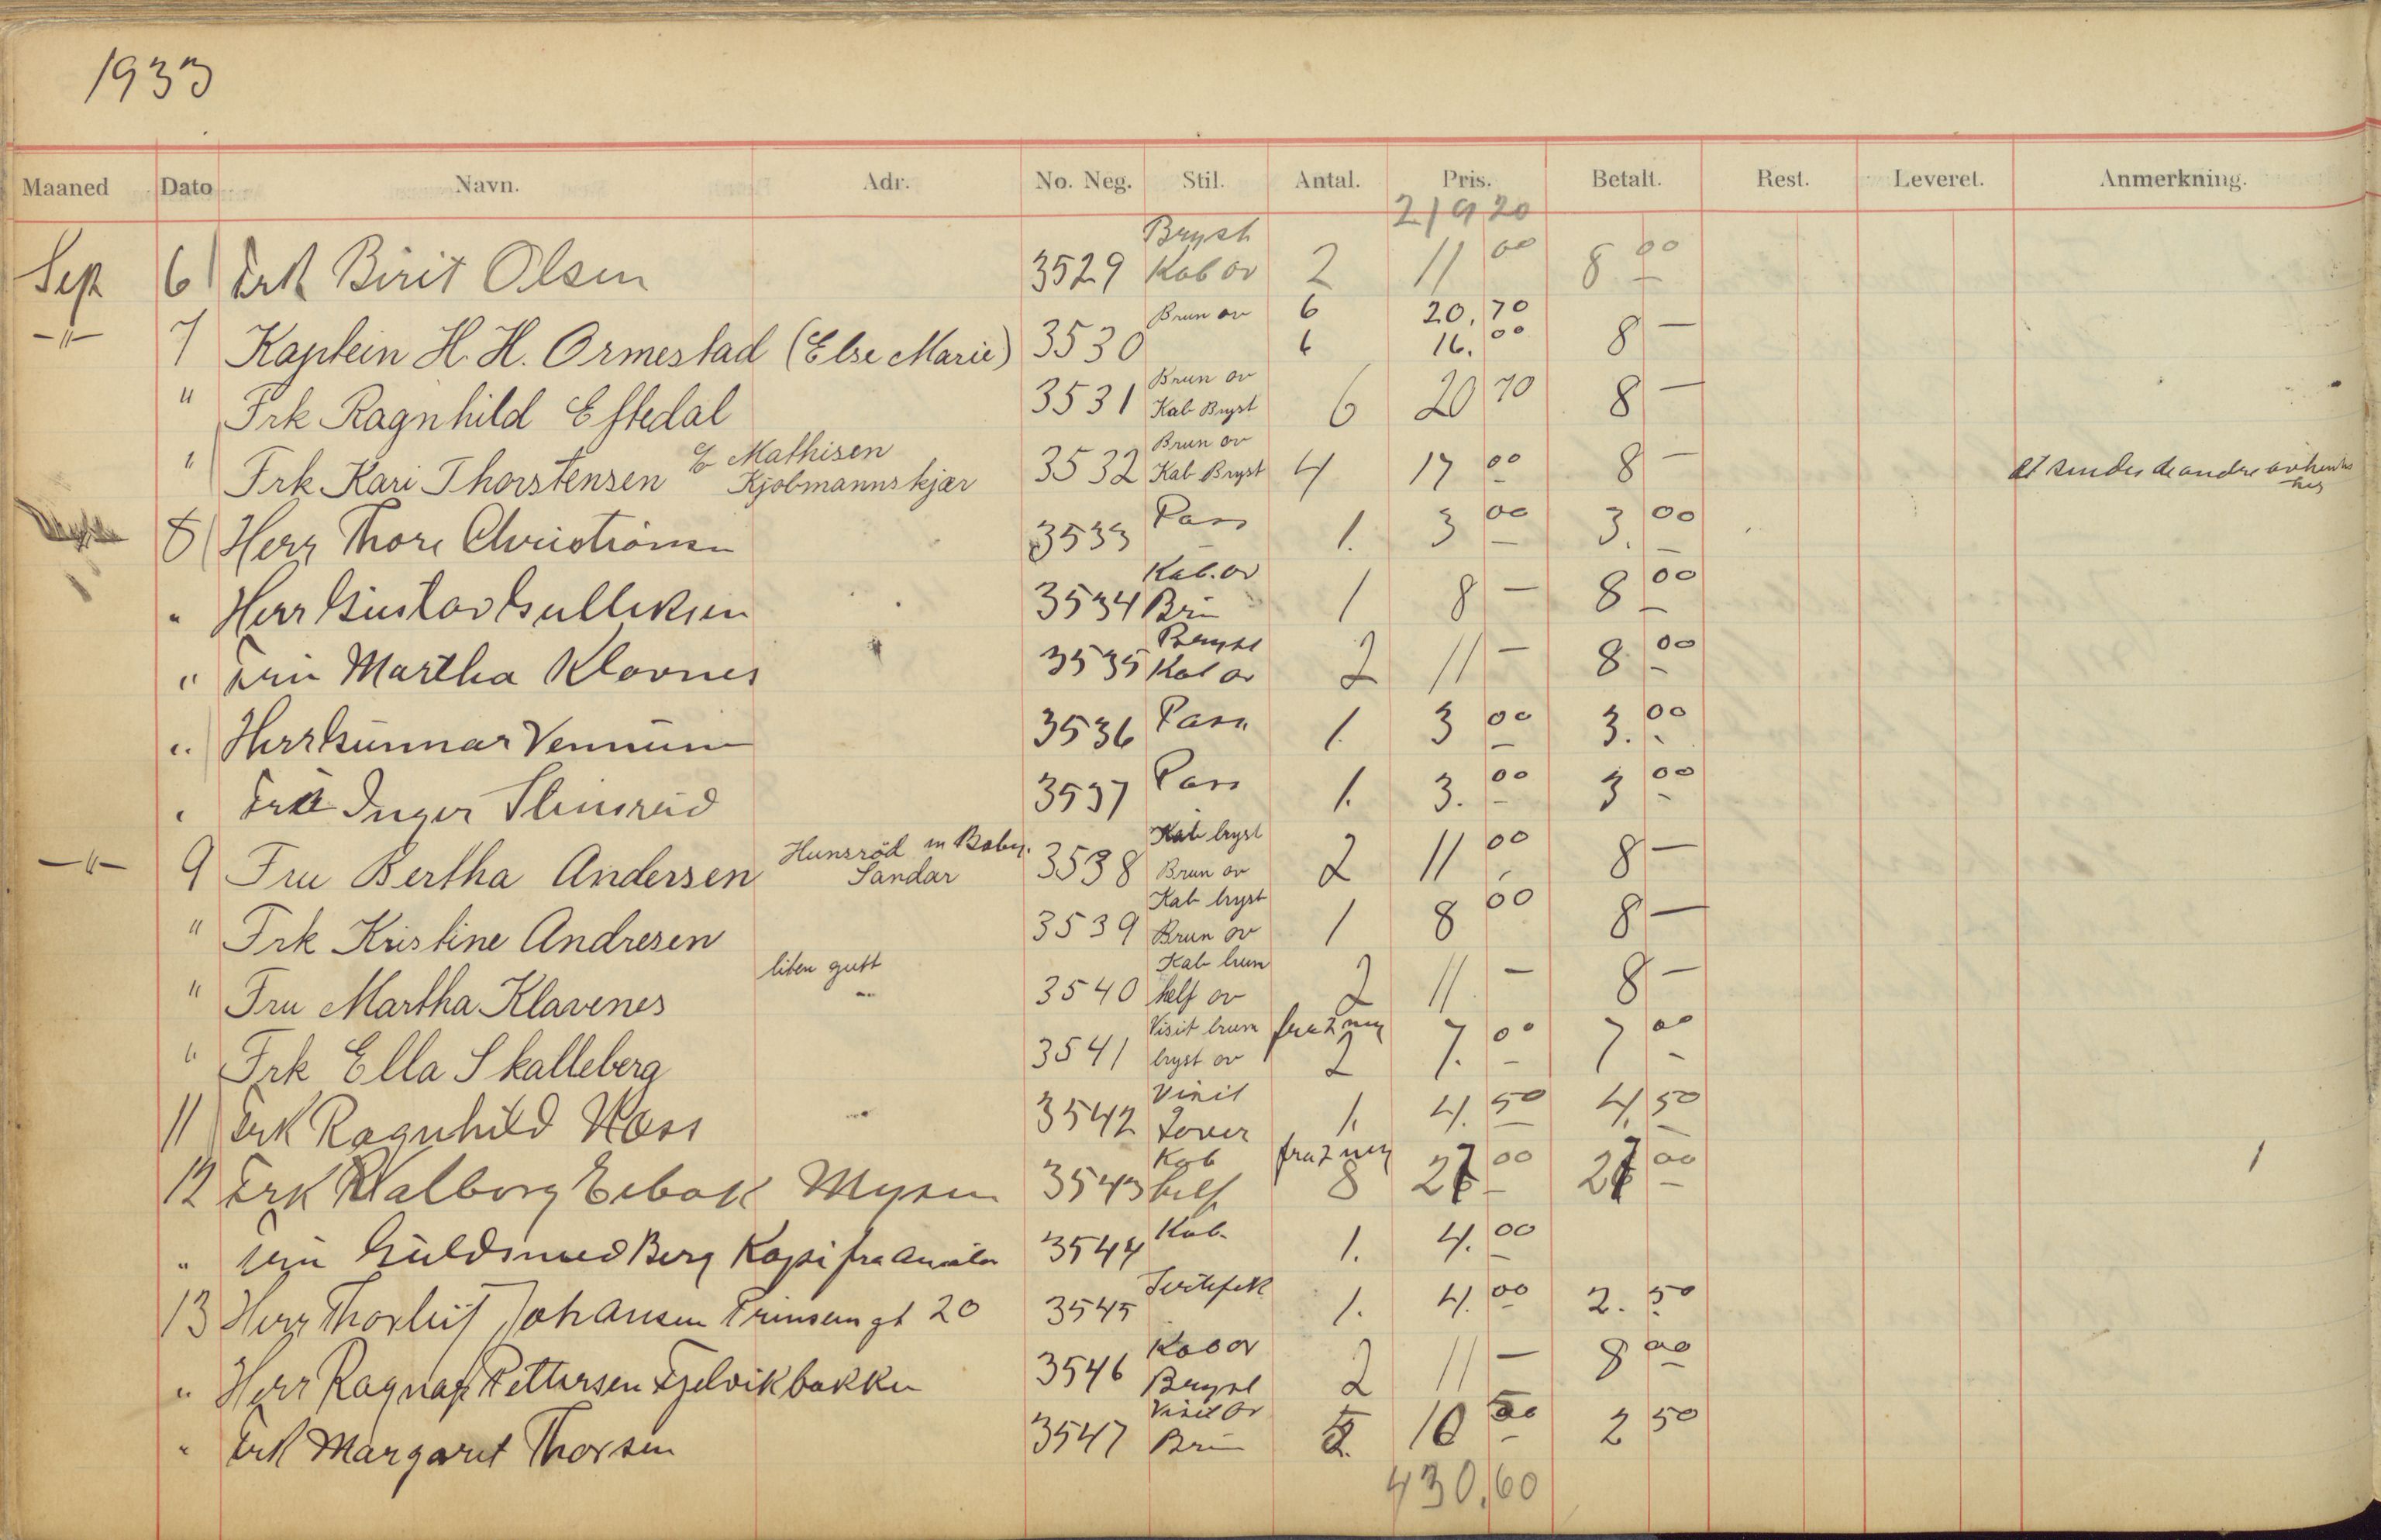 1933
Maaned Dato Navn. Adr. No. Neg. Stil. Antal. Pris. Betalt. Rest. Leveret. Anmerkning.
219 20
Bryst
Sep 6 Frk Birit Olsen 3529 Kab ov 2 11 00 8 00
Brun ov 6 20.70
-"- 7 Kaptein H. H. Ormestad (Else Marie) 3530 6 16.00 8 —
Brun ov
" Frk Ragnhild Eftedal 3531 Kab Bryst 6 20 70 8 —
c/o Mathisen Brun ov
" Frk Kari Thorstensen Kjøbmannskjær 3532 Kab Bryst 4 17 00 8 — et sendes de andre avhentes
her
8 Herr Thore Christiansen 3533 Pass 1. 3 00 3. 00
Kab. ov
" Herr Gustav Gulliksen 3534 Brun 1 8 — 8 00
Bryst
" Fru Martha Klavnes 3535 Kab ov 2 11 — 8 00
" Herr Gunnar Vennum 3536 Pass 1. 3 00 3. 00
" Inger 3537 Pass 1. 3. 00 3 00
Hunsrød m Baby. Kab bryst
-"- 9 Fru Bertha Andersen Sandar 3538 Brun ov 2 11 00 8 —
Kab bryst
" Frk Kristine Andresen 3539 Brun ov 1 8 00 8 —
liten gutt Kab brun
" Fru Martha Klavenes 3540 helf ov 2 11 — 8 —
Visit brun fra 2 neg
" Frk Ella Skalleberg 3541 bryst ov 2 7. 00 7 00
Visit
11 Frk Ragnhild 3542 1. 4. 50 4. 50
Kab fra 2 neg
12 Frk Valborg Mysen 3543 helf 8 27 00 27 00 1
" Fru Guldsmed Berg Kopi fra 3544 Kab. 1. 4. 00
13 Herr Thorleif Johansen Prinsensgt 20 3545 Sertifik 1. 4. 00 2. 50
Kab ov
" Herr Ragnar Pettersen Fjelvikbakken 3546 Bryst 2 11 — 8 00
Visit ov
" Frk Margaret Thorsen 3547 Brun 5 10 50 2 50
430.60